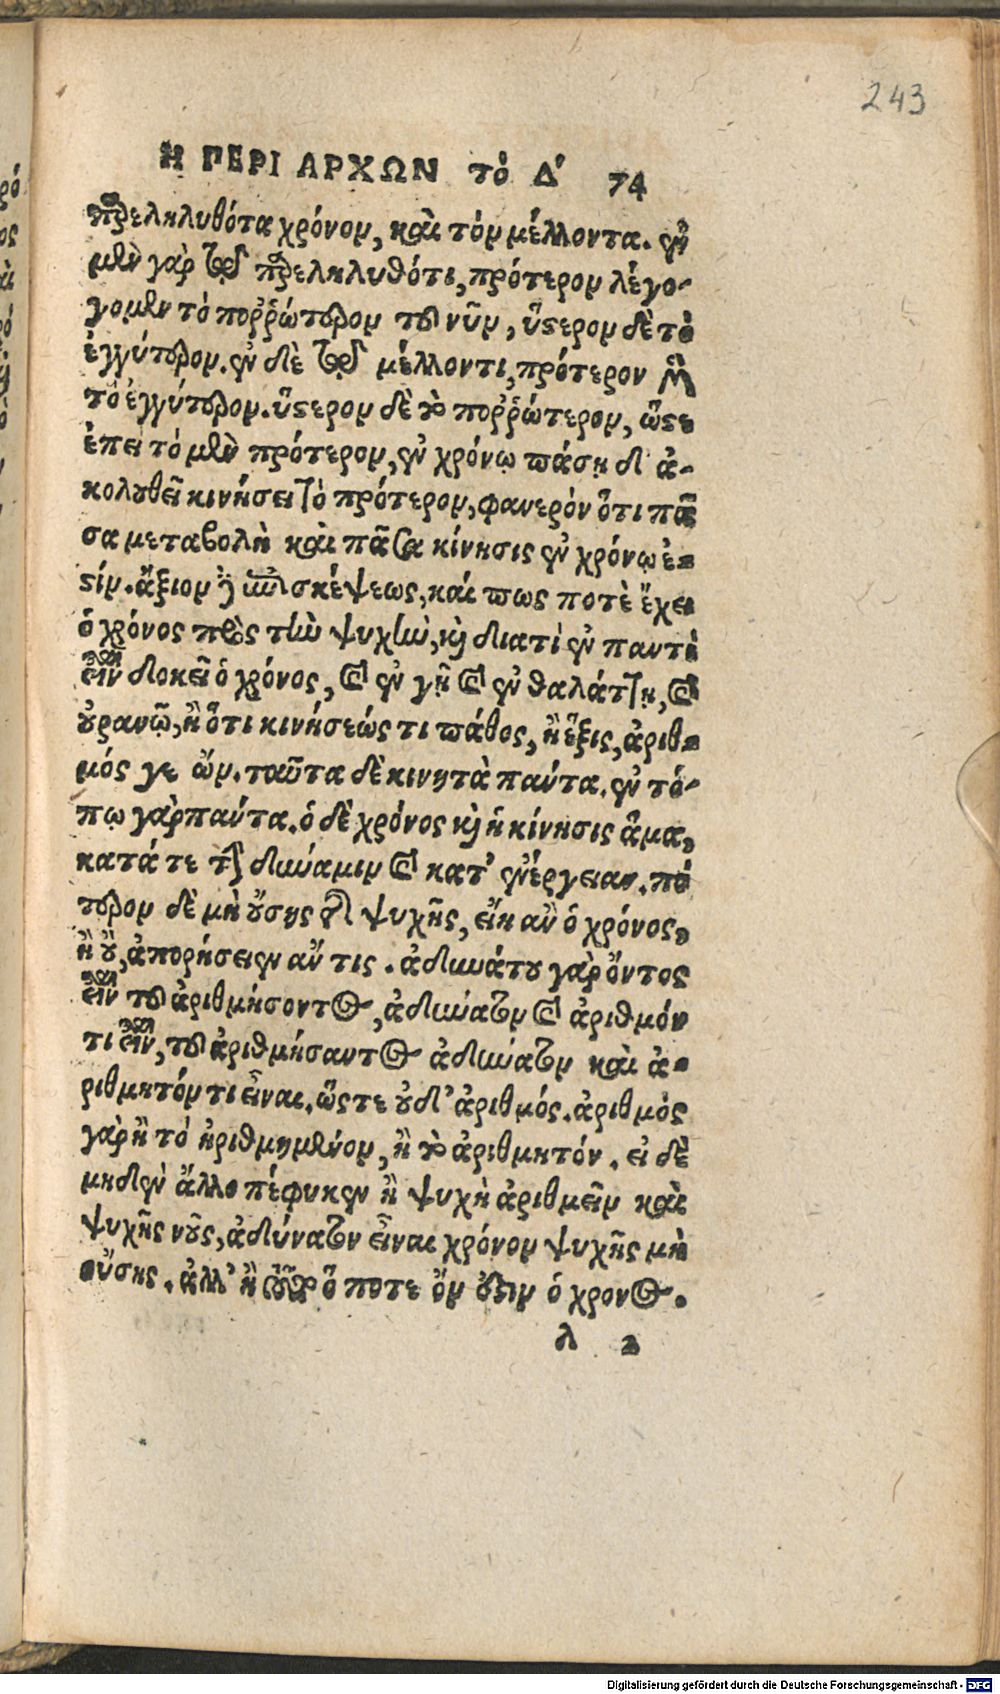 243
Η ΠΕΡΙ ΑΡΧΩΝ τὸ Δ΄ 74
παρεληλυθότα χρόνον, καὶ τὸν μέλλοντα. ἐν
μὲν γὰρ τῷ παρεληλυθότι, πρότερον λέγο-
γομεν τὸ ποῤῥώτερον τοῦ νῦν, ὕστερον δὲ τὸ
ἐγγύτερον. ἐν δὲ τῷ μέλλοντι, πρότερον μὲν
τὸ ἐγγύτερον. ὕστερον δὲ τὸ ποῤῥώτερον, ὥστε
ἐπεὶ τὸ μὲν πρότερον, ἐν χρόνῳ πάσῃ δ' ἀ-
κολουθεῖ κινήσει τὸ πρότερον, φανερὸν ὅτι πᾶ
σα μεταβολὴ καὶ πᾶσα κίνησις ἐν χρόνῳ ἐ-
στίν. ἄξιον δὲ ἐπισκέψεως, καί πως ποτὲ ἔχει
ὁ χρόνος πρὸς τὴν ψυχὴν, καὶ διατὶ ἐν παντὶ
εἶναι δοκεῖ ὁ χρόνος, καὶ ἐν γῇ καὶ ἐν θαλάττῃ, καὶ
οὐρανῷ, ἢ ὅτι κινήσεώς τι πάθος, ἢ ἕξις, ἀριθ-
μός γε ὤν. ταῦτα δὲ κινητὰ πάντα. ἐν τό-
πῳ γὰρ πάντα. ὁ δὲ χρόνος καὶ ἡ κίνησις ἅμα,
κατά τε τὴν δύναμιν καὶ κατ' ἐνέργειαν. πό
τερον δὲ μὴ οὔσης τῆς ψυχῆς, εἴη ἂν ὁ χρόνος,
ἢ οὔ, ἀπορήσειεν ἄν τις. ἀδυνάτου γὰρ ὄντος
εἶναι τοῦ ἀριθμήσοντος, ἀδύνατον καὶ ἀριθμόν
τι εἶναι, τοῦ ἀριθμήσαντος ἀδύνατον καὶ ἀ-
ριθμητόν τι εἶναι. ὥστε οὐδ' ἀριθμός. ἀριθμὸς
γὰρ ἢ τὸ ἠριθμημένον, ἢ τὸ ἀριθμητόν. εἰ δὲ
μηδὲν ἄλλο πέφυκεν ἢ ψυχὴ ἀριθμεῖν καὶ
ψυχῆς νοῦς, ἀδύνατον εἶναι χρόνον ψυχῆς μὴ
οὔσης. ἀλλ' ἢ τοῦτο ὅ ποτε ὄν ἐστιν ὁ χρονος.
λ 2
Digitalisierung gefördert durch die Deutsche Forschungsgemeinschaft - DFG